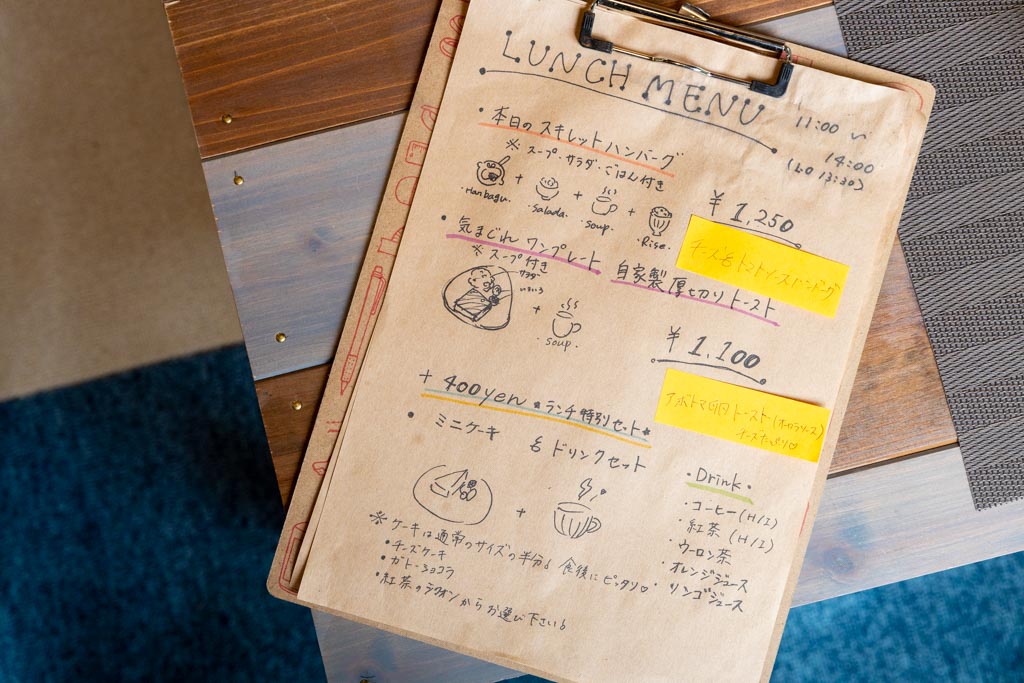 LUNCH MENU
11:00 〜
14:00
(L.O 13:30)
・本日の スキレット ハンバーグ
※ スープ・サラダ・ごはん付き
・Hanbagu. + ・Salada. + ・soup. + ・Rise.
¥ 1,250
チーズ& トマトソースハンバーグ
・気まぐれ ワンプレート 自家製 厚切りトースト
※ スープ付き
サラダ
+ soup.
¥ 1,100
アボトマ卵トースト(オーロラソース)
チーズたっぷり♡
+ 400yen ★ランチ特別セット★
・ミニケーキ & ドリンクセット
+
※ ケーキは通常のサイズの半分! 食後にピッタリ♡
・チーズケーキ
・ガトーショコラ
・紅茶のシフォン からお選び下さい!
・Drink・
・コーヒー(H/I)
・紅茶(H/I)
・ウーロン茶
・オレンジジュース
・リンゴジュース